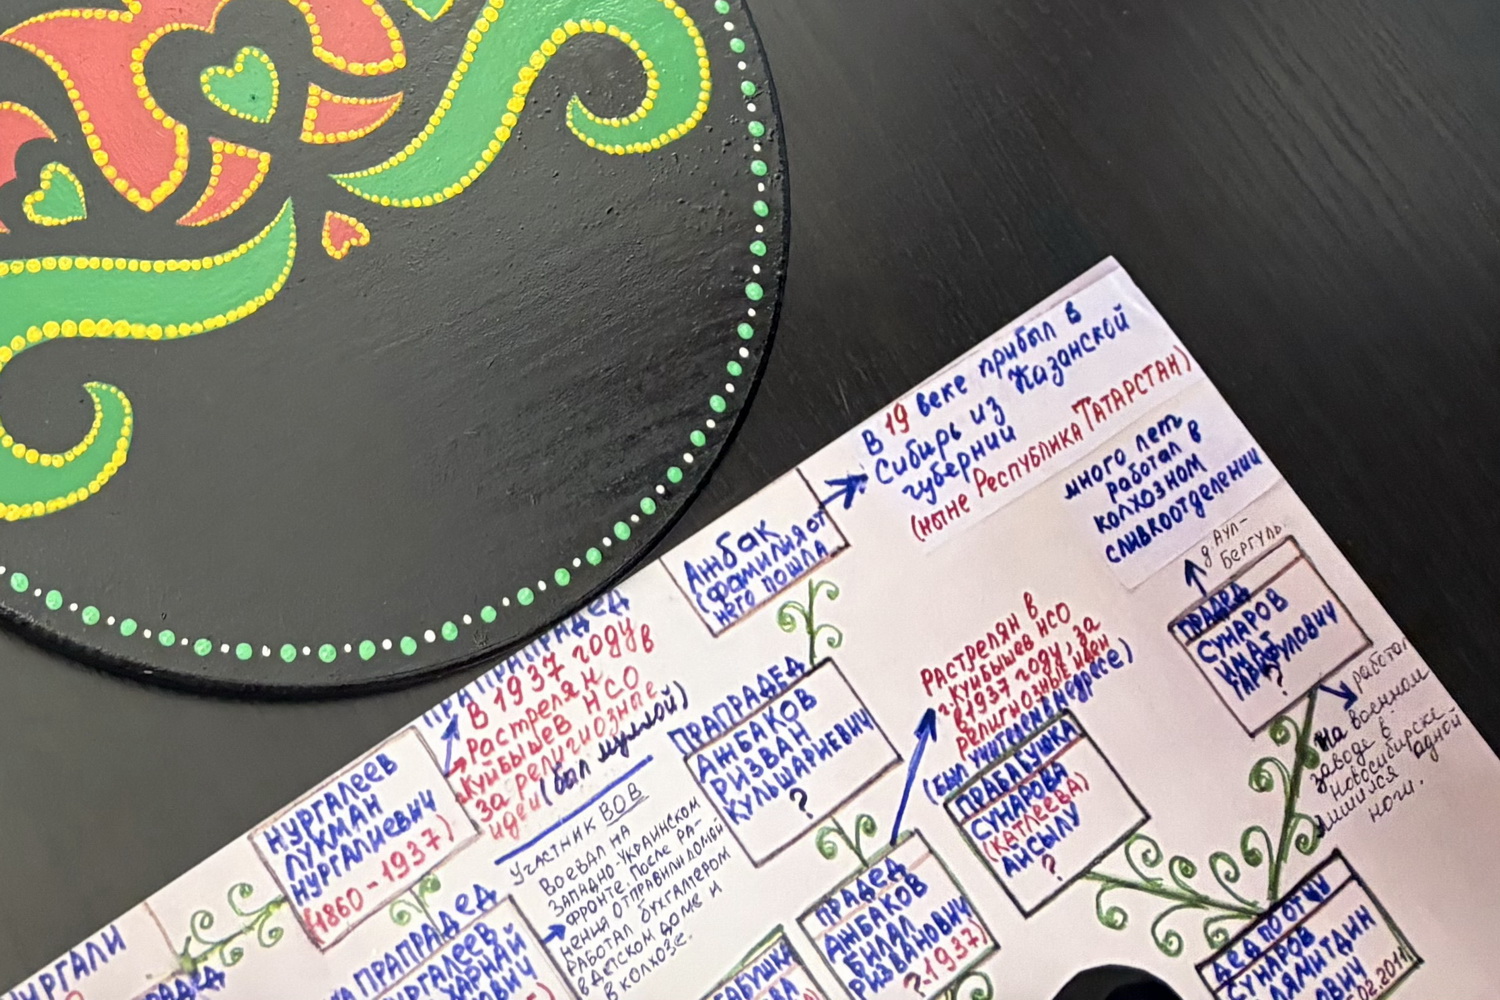 В 19 веке прибыл в
Сибирь из Казанской
губернии
(ныне Республика ТАТАРСТАН)
много лет
работал в
колхозном
сливкоотделении
Ажбак
(фамилия от
него пошла
д Аул-
Бергуль
ПРАДЕД
СУНАРОВ
ИМАТ
?
работал
На военном
заводе в
Новосибирске
лишился одной
ноги.
Расстрелян в
г. Куйбышев НСО
в 1937 году, за
религиозные идеи
(был учителем в медрессе)
ПРАПРАДЕД
АЖБАКОВ
РИЗВАН
КУЛЬШАРИЕВИЧ
?
ПРАБАБУШКА
СУНАРОВА
(КАТЛЕЕВА)
АЙСЫЛУ
?
ПРАПРАПРАДЕД
В 1937 году в
Расстрелян
Куйбышев НСО
за религиозные
идеи (был муллой)
НУРГАЛЕЕВ
ЛУКМАН
НУРГАЛИЕВИЧ
(1860-1937)
Участник ВОВ
Воевал на
Западно-Украинском
фронте. После ра-
нения отправили домой
работал бухгалтером
в детском доме и
в колхозе.
ПРАДЕД
АЖБАКОВ
БИЛАЛ
РИЗВАНОВИЧ
?-1937)
ДЕД ПО ОТЦУ
СУНАРОВ
02.2011
НУРГАЛИ
ПРАПРАДЕД